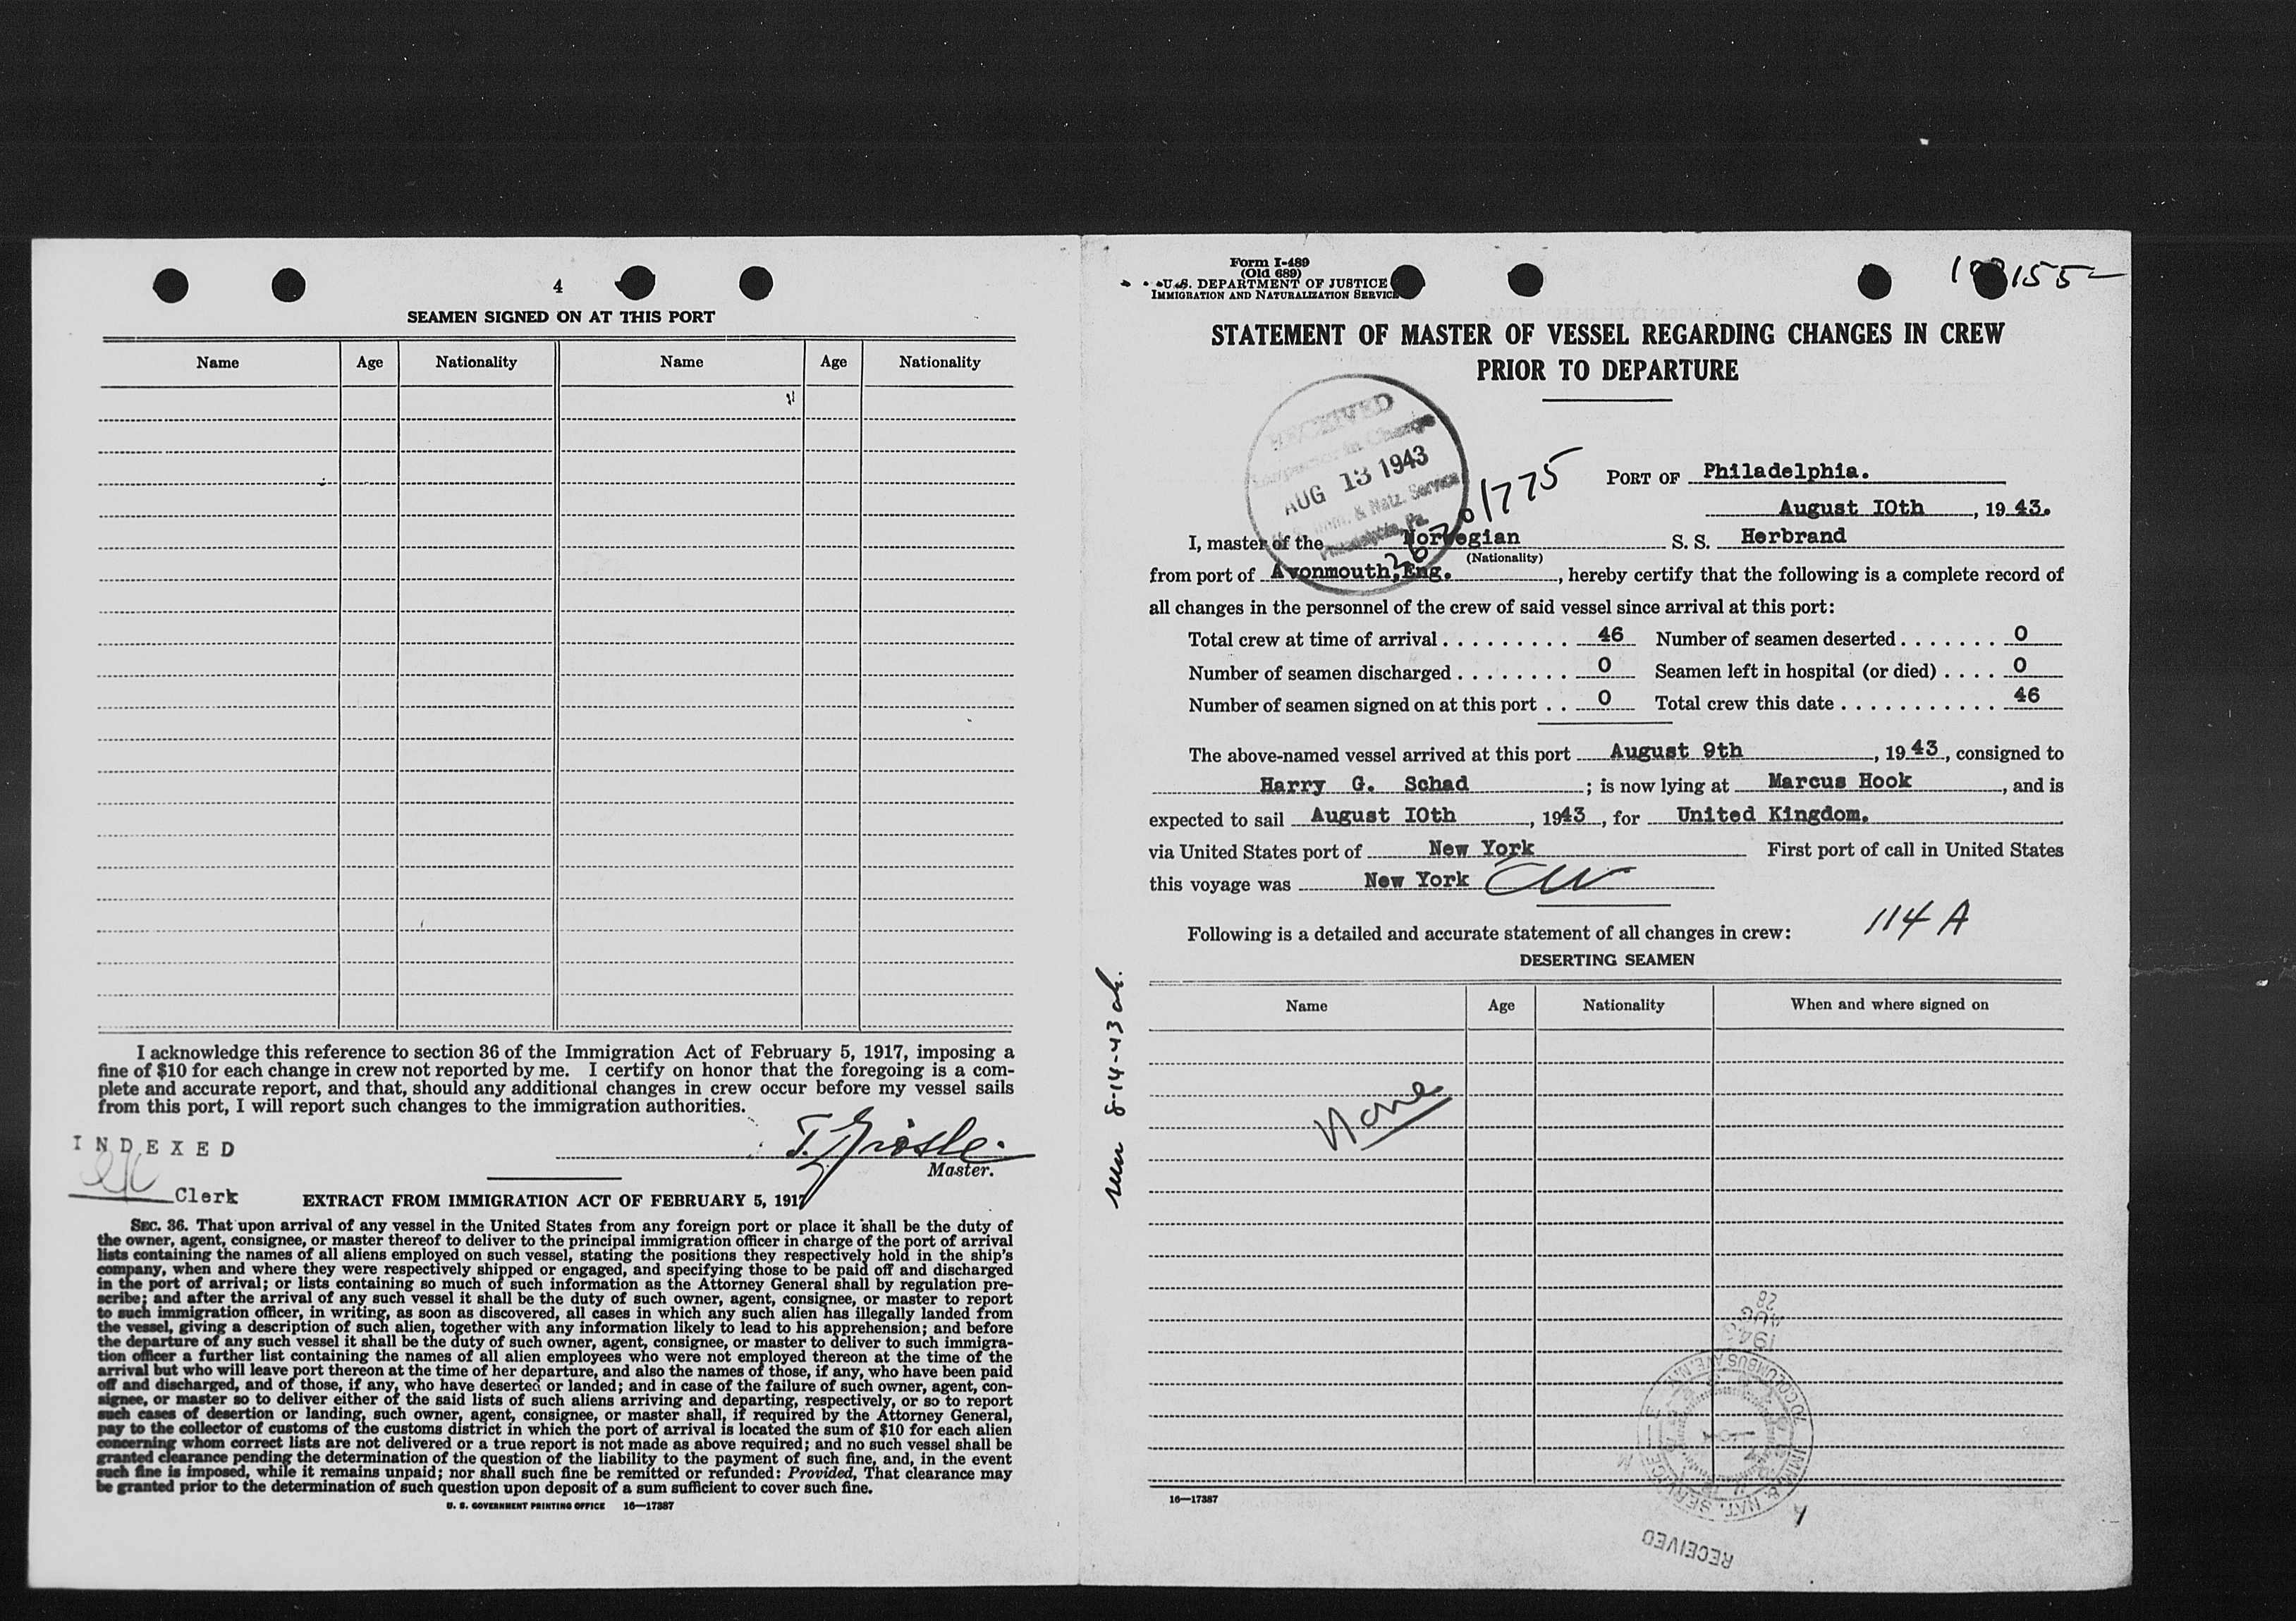 4
SEAMEN SIGNED ON AT THIS PORT
Name Age Nationality Name Age Nationality
I acknowledge this reference to section 36 of the Immigration Act of February 5, 1917, imposing a
fine of $10 for each change in crew not reported by me. I certify on honor that the foregoing is a com-
plete and accurate report, and that, should any additional changes in crew occur before my vessel sails
from this port, I will report such changes to the immigration authorities.
INDEXED
Master.
Clerk
EXTRACT FROM IMMIGRATION ACT OF FEBRUARY 5, 1917
SEC. 36. That upon arrival of any vessel in the United States from any foreign port or place it shall be the duty of
the owner, agent, consignee, or master thereof to deliver to the principal immigration officer in charge of the port of arrival
lists containing the names of all aliens employed on such vessel, stating the positions they respectively hold in the ship's
company, when and where they were respectively shipped or engaged, and specifying those to be paid off and discharged
in the port of arrival; or lists containing so much of such information as the Attorney General shall by regulation pre-
scribe; and after the arrival of any such vessel it shall be the duty of such owner, agent, consignee, or master to report
to such immigration officer, in writing, as soon as discovered, all cases in which any such alien has illegally landed from
the vessel, giving a description of such alien, together with any information likely to lead to his apprehension; and before
the departure of any such vessel it shall be the duty of such owner, agent, consignee, or master to deliver to such immigra-
tion officer a further list containing the names of all alien employees who were not employed thereon at the time of the
arrival but who will leave port thereon at the time of her departure, and also the names of those, if any, who have been paid
off and discharged, and of those, if any, who have deserted or landed; and in case of the failure of such owner, agent, con-
signee, or master so to deliver either of the said lists of such aliens arriving and departing, respectively, or so to report
such cases of desertion or landing, such owner, agent, consignee, or master shall, if required by the Attorney General,
pay to the collector of customs of the customs district in which the port of arrival is located the sum of $10 for each alien
concerning whom correct lists are not delivered or a true report is not made as above required; and no such vessel shall be
granted clearance pending the determination of the question of the liability to the payment of such fine, and, in the event
such fine is imposed, while it remains unpaid; nor shall such fine be remitted or refunded: Provided, That clearance may
be granted prior to the determination of such question upon deposit of a sum sufficient to cover such fine.
U. S. GOVERNMENT PRINTING OFFICE 16—17387
Form I-489
(Old 689)
U.S. DEPARTMENT OF JUSTICE
IMMIGRATION AND NATURALIZATION SERVICE
STATEMENT OF MASTER OF VESSEL REGARDING CHANGES IN CREW
PRIOR TO DEPARTURE
RECEIVED
Inspector in Charge
AUG 13 1943
Imm. & Natz. Service
Philadelphia, Pa.
PORT OF Philadelphia.
August I0th, 19 43.
I, master of the Norwegian S. S. Herbrand
(Nationality)
from port of Avonmouth,Eng., hereby certify that the following is a complete record of
all changes in the personnel of the crew of said vessel since arrival at this port:
Total crew at time of arrival . . . . . . . . . 46 Number of seamen deserted . . . . . . . 0
Number of seamen discharged . . . . . . . . 0 Seamen left in hospital (or died) . . . . 0
Number of seamen signed on at this port . . 0 Total crew this date . . . . . . . . . . . 46
The above-named vessel arrived at this port August 9th, 19 43, consigned to
Harry G. Schad; is now lying at Marcus Hook, and is
expected to sail August I0th, 1943, for United Kingdom.
via United States port of New York First port of call in United States
this voyage was New York
114 A
Following is a detailed and accurate statement of all changes in crew:
DESERTING SEAMEN
Name Age Nationality When and where signed on
None
seen 8-14-43
28
AUG
1943
COLUMBUS AVE.
IMMI & NAT. SERVICE
16—17387
RECEIVED